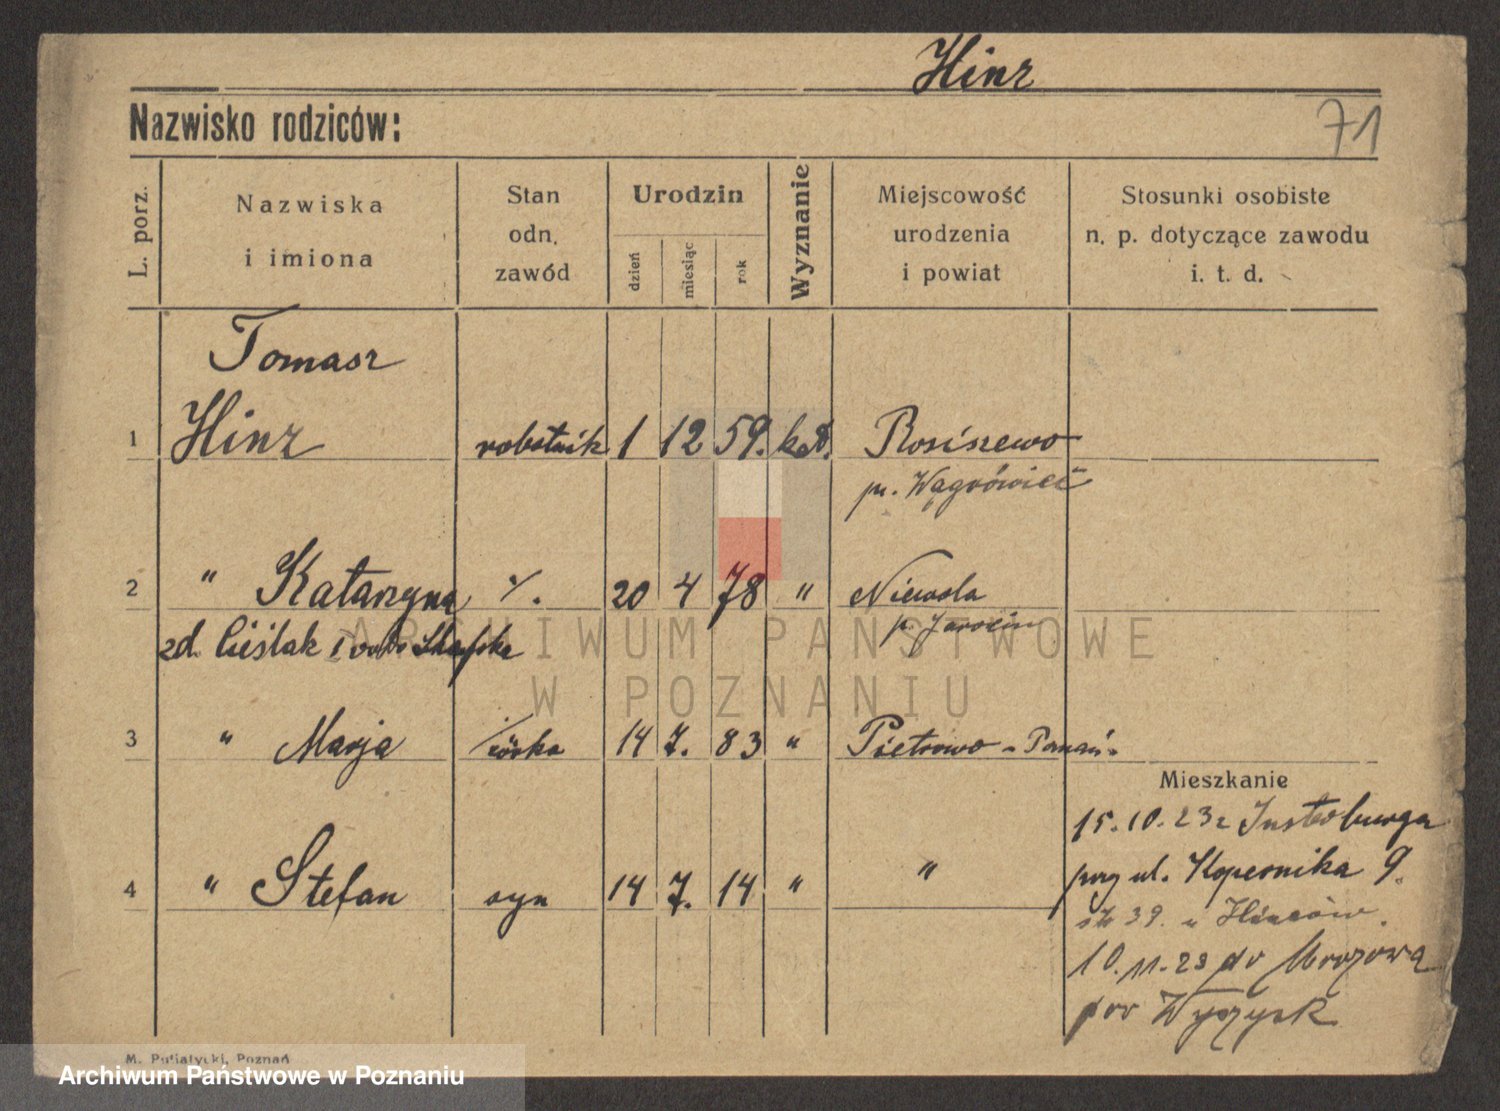 Hinz
Nazwisko rodziców:
71
L. porz.
Nazwiska
i imiona
Stan
odn.
zawód
Urodzin
dzień
miesiąc
rok
Wyznanie
Miejscowość
urodzenia
i powiat
Stosunki osobiste
n. p. dotyczące zawodu
i. t. d.
Tomasz
1 Hinz robotnik 1 12 59. kat. Rosiszewo
p. Wągrówiec
2 " Katarzyna ż. 20 4 78 " Niewola
p. Jarocin
zd. Cieślak I voto
3 " Marja córka 14 7. 83 " Pietrowo - Poznań -
Mieszkanie
15.10.23 z Insterburga
przy ul. Kopernika 9.
39. u
4 " Stefan syn 14 7. 14 " "
10.11.23 do Mrozowa
pow Wyrzysk
M. Putiatycki, Poznań
ARCHIWUM PAŃSTWOWE
W POZNANIU
Archiwum Państwowe w Poznaniu